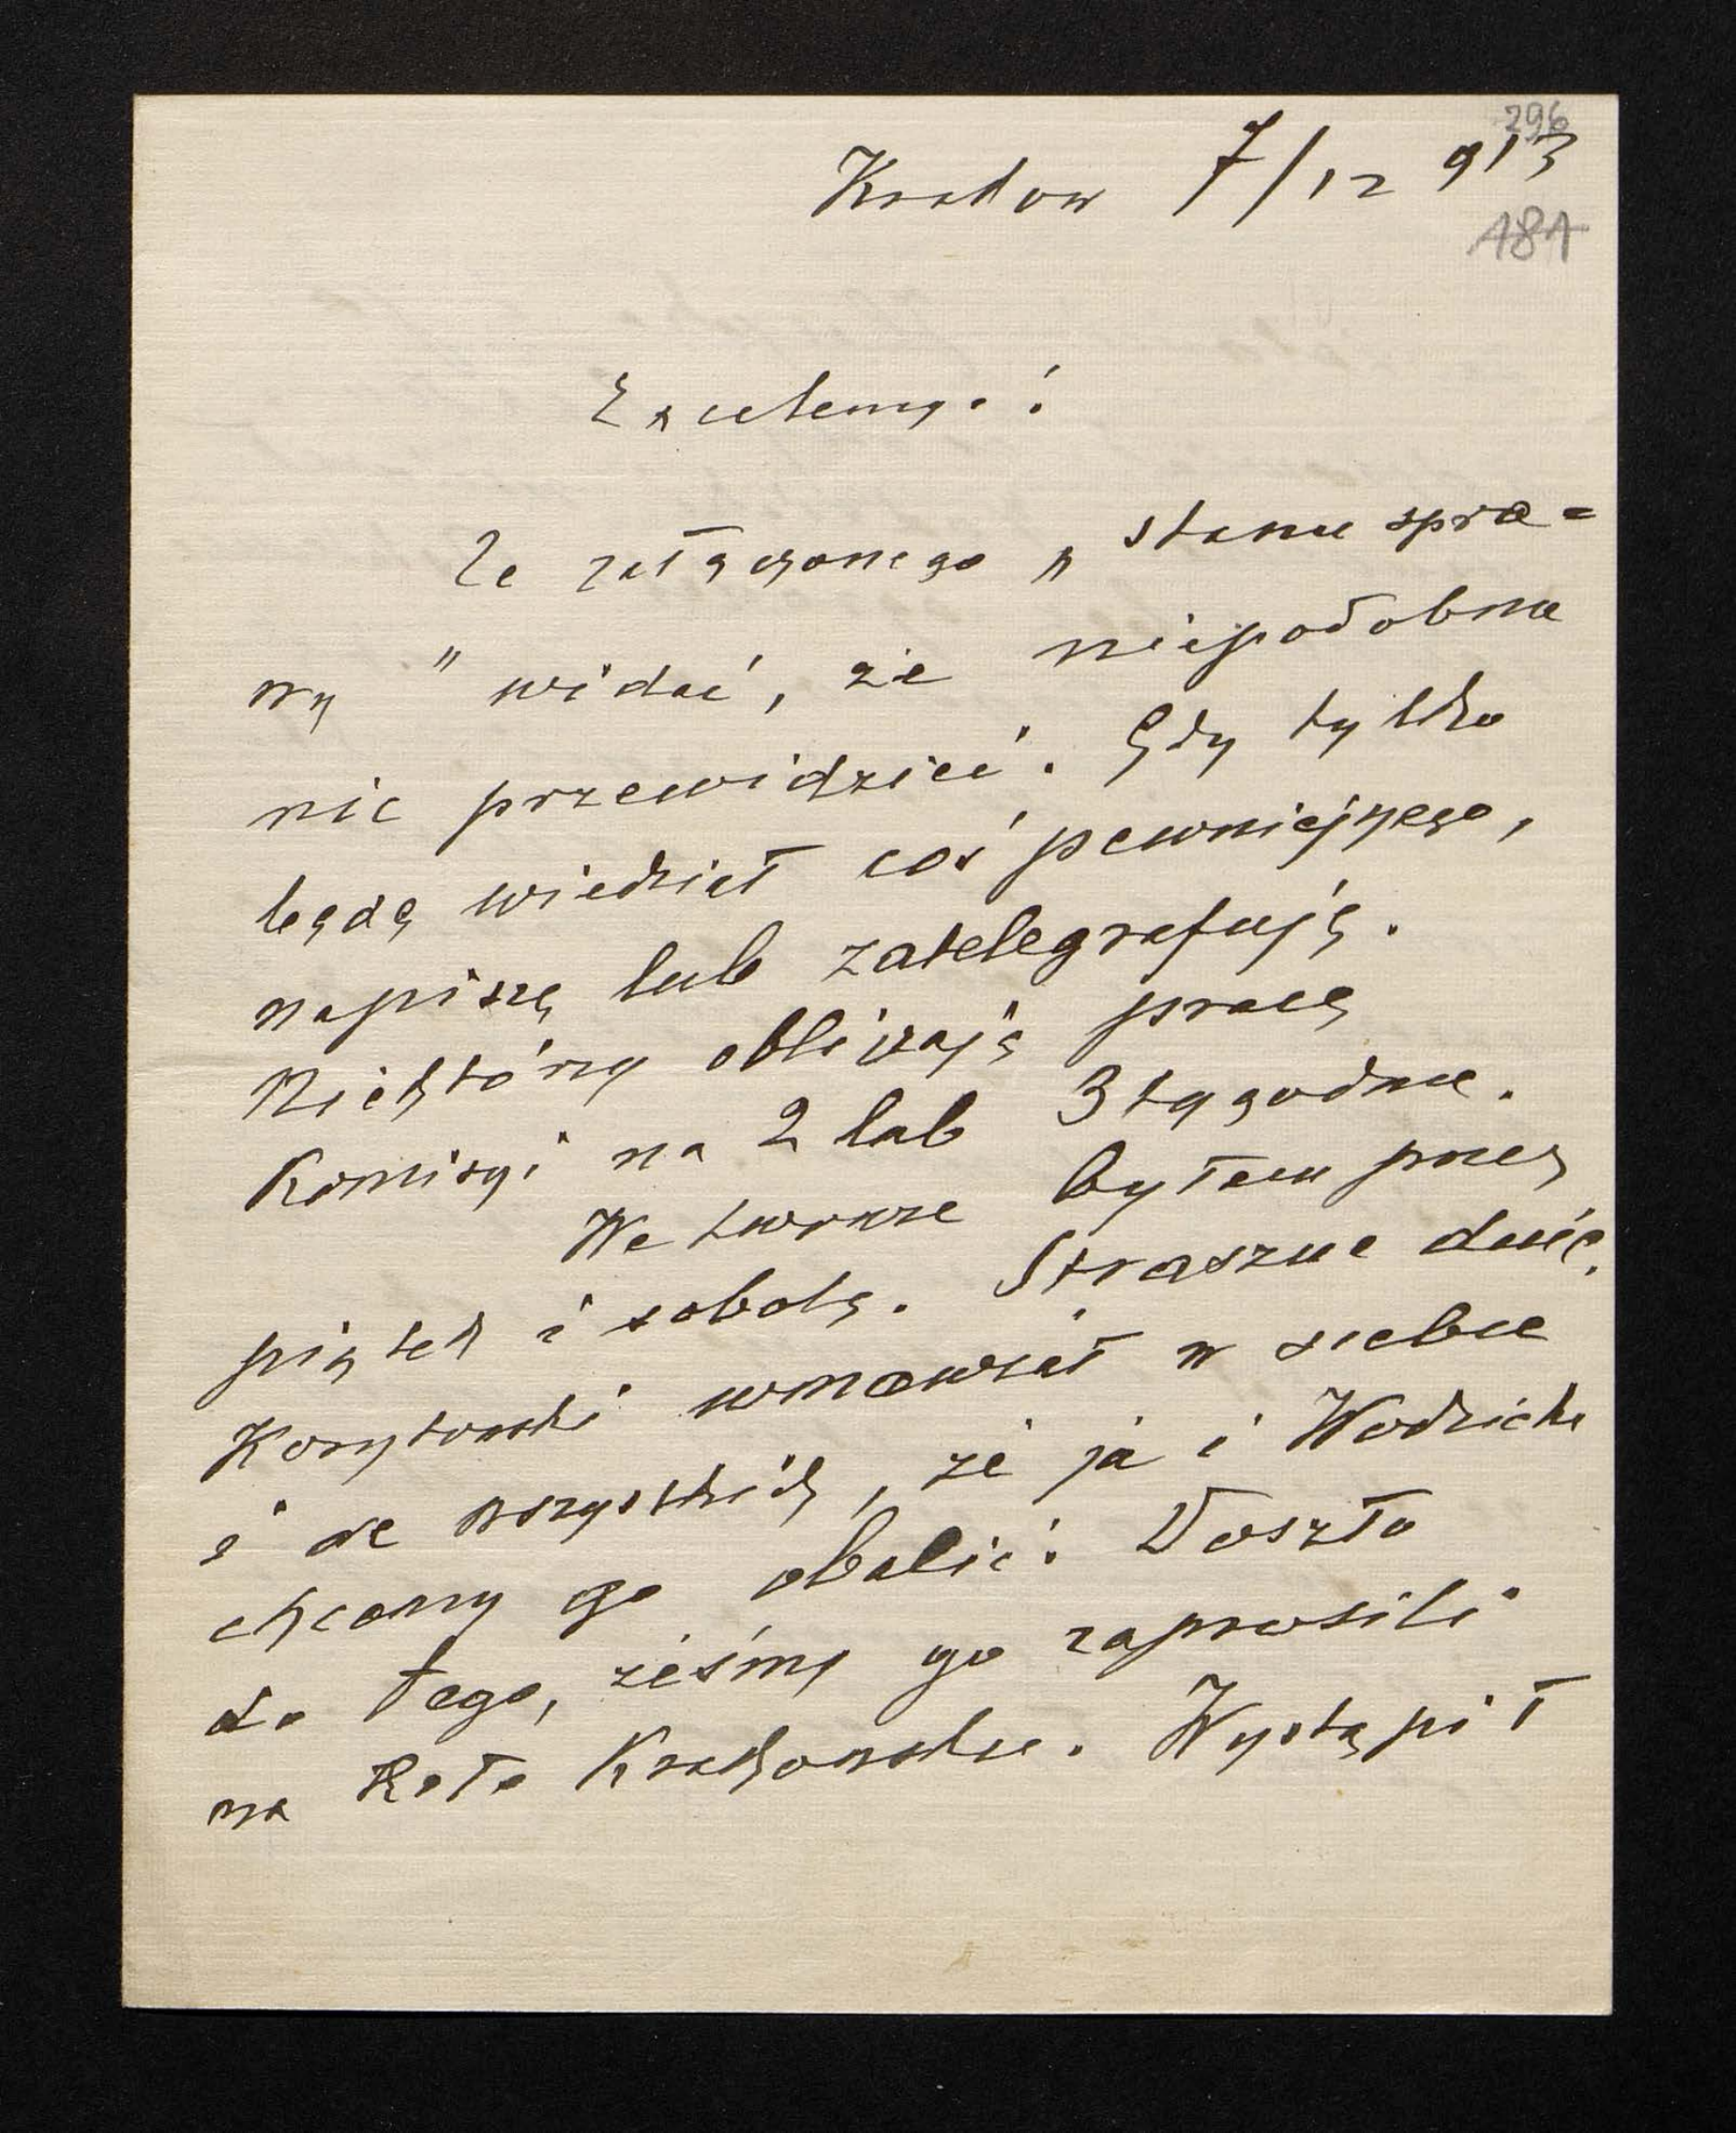 296
Krakow 7/12 913
181
Excelencyo!
Ze załączonego „stanu spra=
wy" widać, że niepodobna
nic przewidzieć. Gdy tylko
będę wiedział coś pewniejszego,
napiszę lub zatelegrafuję.
Niektórzy obliczają pracę
Komisyi na 2 lub 3 tygodnie.
We Lwowie byłem przez
piątek i sobotę. Straszne dnie.
Korytowski wmawiał w siebie
i we wszystkich, że ja i Wodzicki
chcemy go obalić. Doszło
do tego, żeśmy go zaprosili
na Koło Krakowskie. Wystąpił